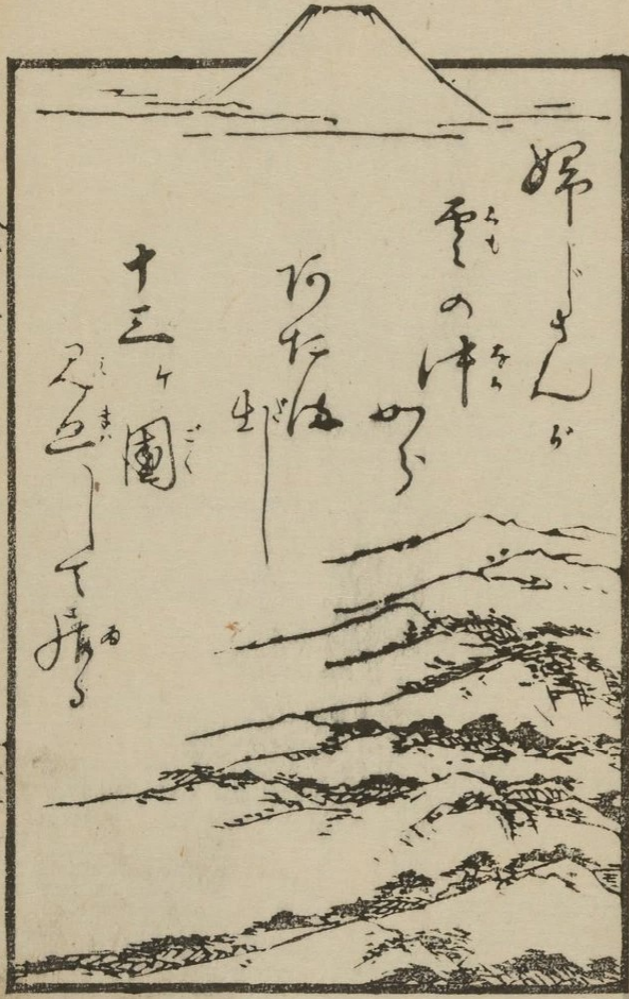 婦じさんが
雲の中から
阿たま
出し
十三ヶ國
見廻して居る